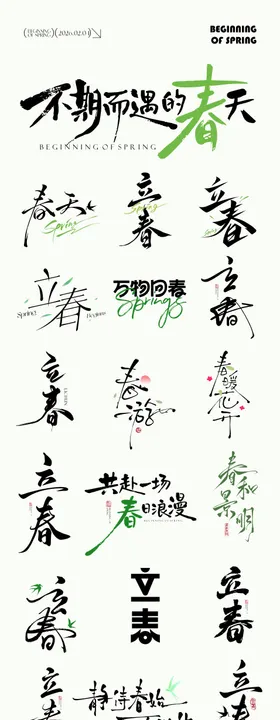 BEGINNING
OF SPRING
不期而遇的春天
BEGINNING OF SPRING
春天
Spring
立春
Spring
立春
立春
Spring
Begins
万物回春
Springs
立春
立春
春游
春暖花开
立春
共赴一场
春日浪漫
春和景明
立春
立春
立春
立春
静待春始
立春